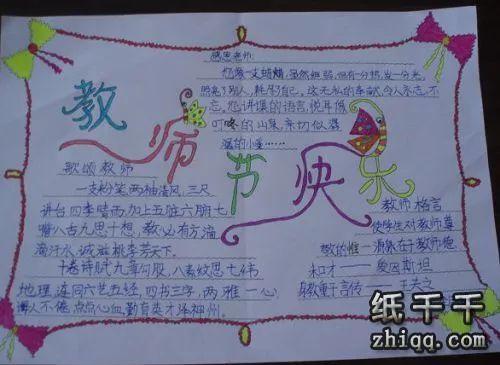 感恩老师:
您像一支蜡烛,虽然细弱,但有一分热,发一分光,
照亮了别人,耗尽了自己。这无私的奉献,令人永志不
忘。您讲课的语言,悦耳像
叮咚的山泉,亲切似潺
潺的小溪……
教师节快乐
歌颂教师
一支粉笔两袖清风,三尺
讲台四季晴雨,加上五脏六腑七
嘴八舌九思十想,教必有方,滴
滴汗水,诚滋桃李芳天下。
十卷诗赋九章勾股,八索文思七纬
地理,连同六艺五经,四书三字,两雅一心
诲人不倦,点点心血,勤育英才泽神州。
教师格言
使学生对教师尊
敬的惟一源泉在于教师德
和才——爱因斯坦
身教重于言传——王夫之
纸千千
zhiqq.com